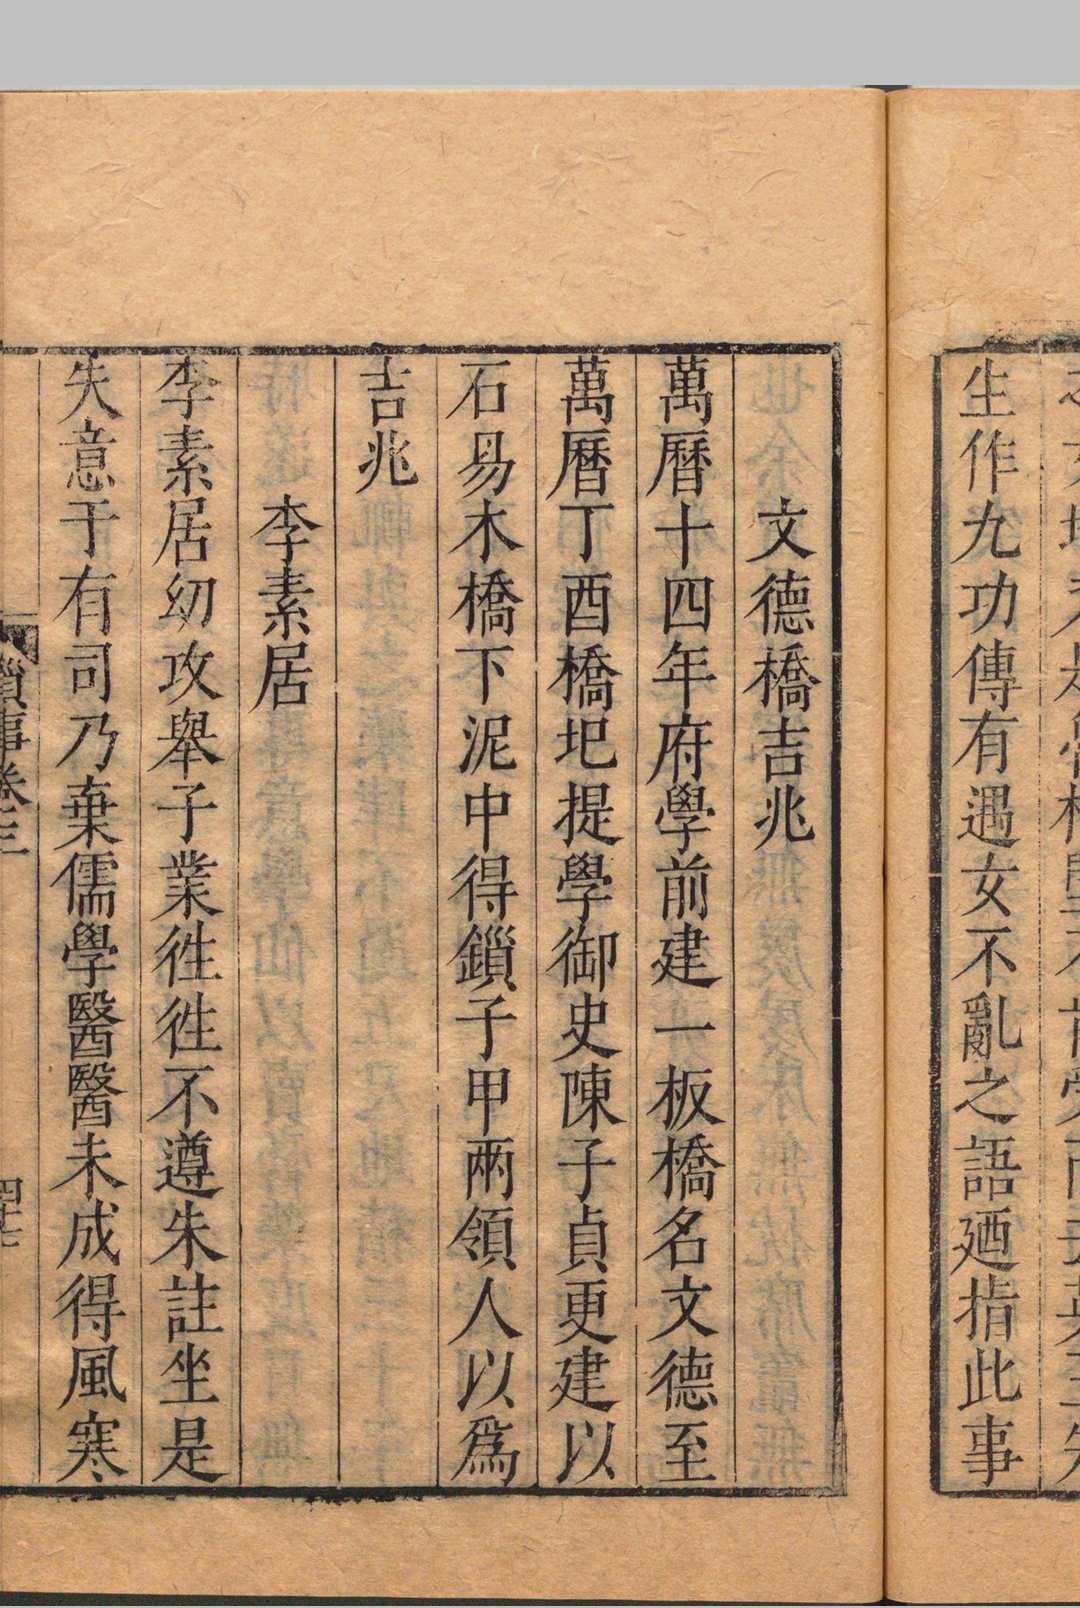 生作九功傳有遇女不亂之語廼指此事
文德橋吉兆
萬曆十四年府學前建一板橋名文德至
萬曆丁酉橋圯提學御史陳子貞更建以
石易木橋下泥中得鎖子甲兩領人以為
吉兆
李素居
李素居幼攻舉子業徃徃不遵朱註坐是
失意于有司乃棄儒學醫醫未成得風寒
瑣事卷三